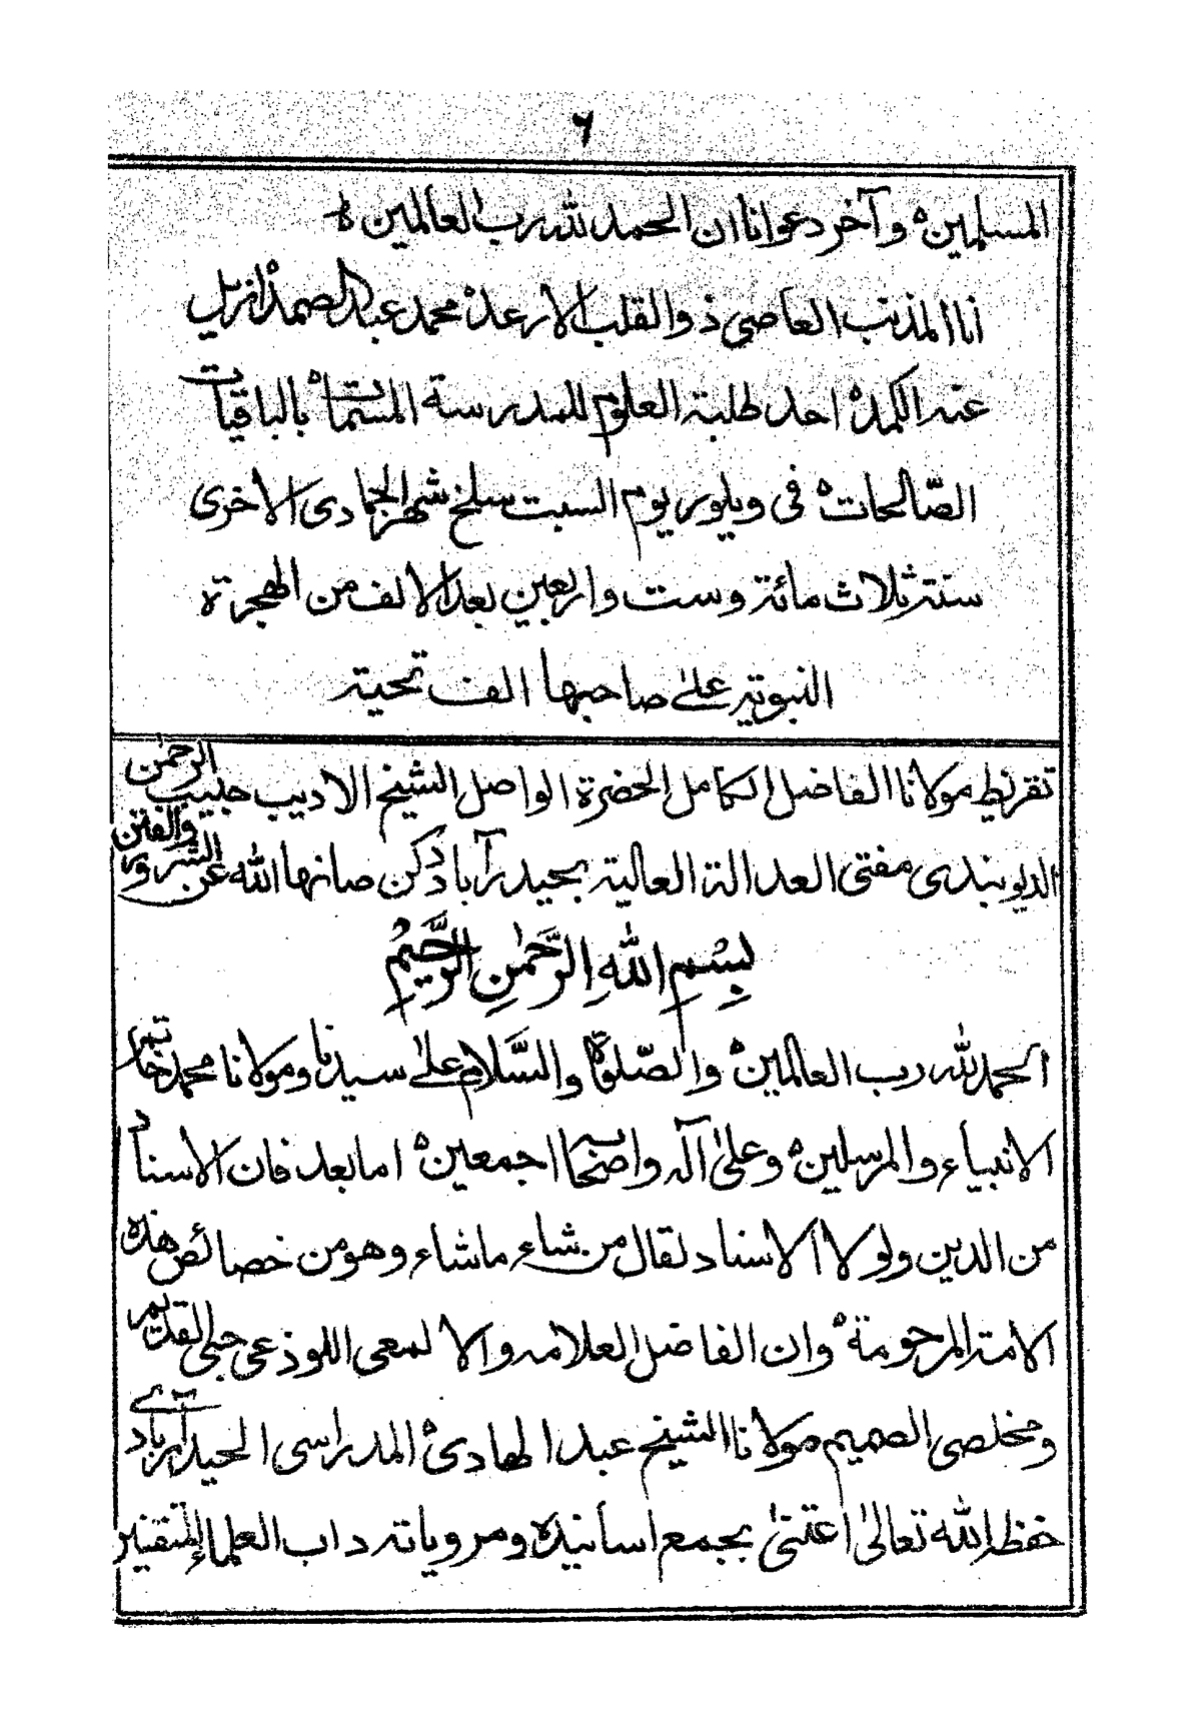 ٦
المسلمين ه وآخر دعوانا ان الحمد لله رب العالمين ه
انا المذنب العاصي ذو القلب الارعد محمد عبد الصمد ازيل
عنه الكمد احد طلبة العلوم للمدرسة المسماة بالباقيات
الصّالحات ه في ويلور يوم السبت سلخ شهر الجمادى الاخرى
سنة ثلاث مائة وست واربعين بعد الالف من الهجرة
النبوية على صاحبها الف تحية
تقريظ مولانا الفاضل الكامل الحضرة الواصل الشيخ الاديب حبيب الرحمن
الديوبندى مفتى العدالة العالية بحيدرآباد دكن صانها الله عن الشرور والفتن
بِسْمِ اللهِ الرَّحْمٰنِ الرَّحِيْمِ
الحمد لله رب العالمين ه والصّلوٰة والسَّلام علىٰ سيدنا ومولانا محمد خاتم
الانبياء والمرسلين ه وعلىٰ آله واصحابه اجمعين ه اما بعد فان الاسناد
من الدين ولولا الاسناد لقال من شاء ما شاء وهو من خصائص هذه
الامة المرحومة ه وان الفاضل العلامه والالمعى اللوذعى حبى القديم
ومخلصى الصميم مولانا الشيخ عبد الهادى المدراسى الحيدرآبادى
حفظه الله تعالىٰ اعتنىٰ بجمع اسانيده ومروياته داب العلماء المتقنين